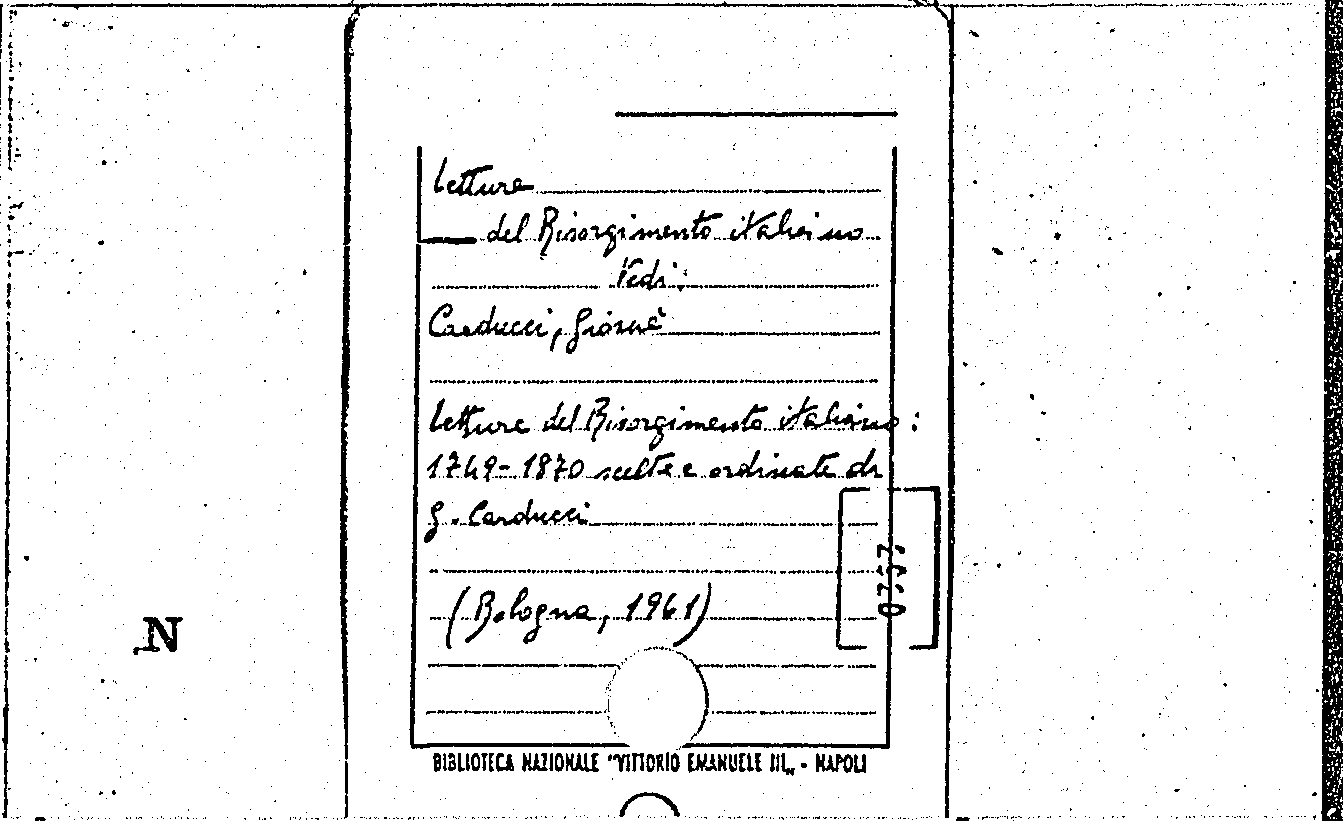 Letture
del Risorgimento italiano
Vedi:
Carducci, Giosuè
Letture del Risorgimento italiano:
1749-1870 scelte e ordinate da
G. Carducci
(Bologna, 1961)
N
BIBLIOTECA NAZIONALE "VITTORIO EMANUELE III" - NAPOLI